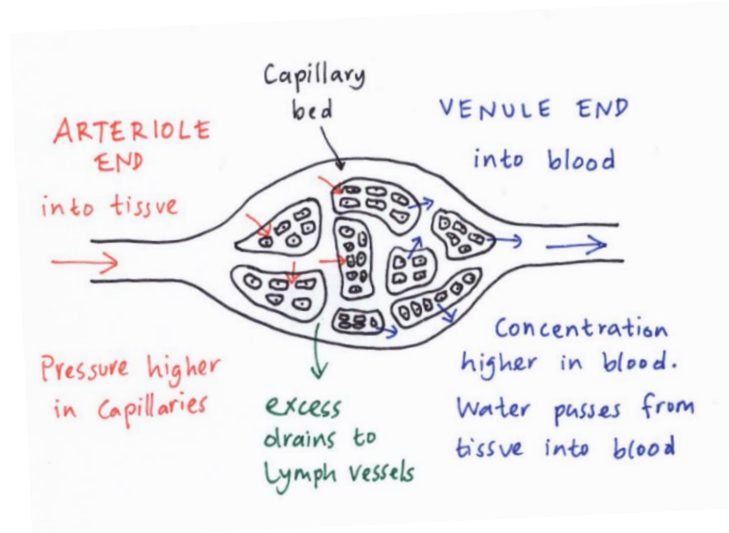 Capillary
bed
ARTERIOLE
END
into tissue
VENULE END
into blood
Pressure higher
in Capillaries
excess
drains to
Lymph vessels
Concentration
higher in blood.
Water passes from
tissue into blood